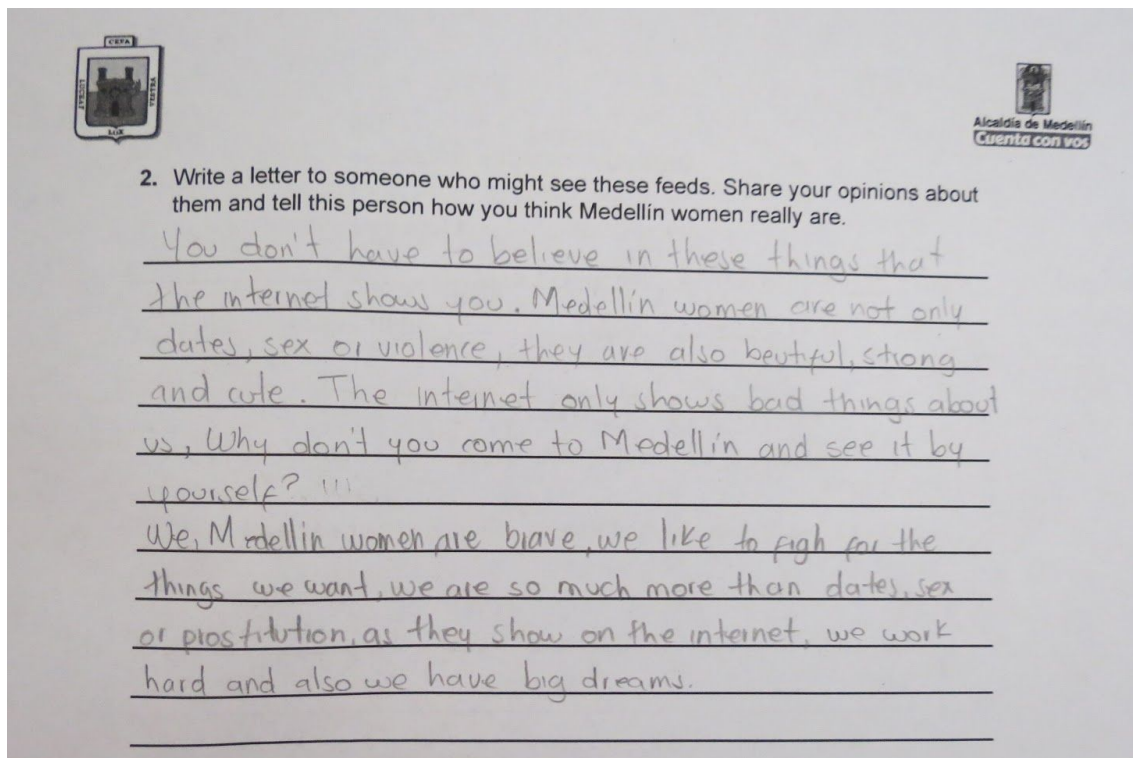 CEFA
LUCEAT
VESTRA
LUX
Alcaldía de Medellín
Cuenta con vos
2. Write a letter to someone who might see these feeds. Share your opinions about
them and tell this person how you think Medellín women really are.
You don't have to believe in these things that
the internet shows you. Medellín women are not only
dates, sex or violence, they are also beutiful, strong
and cute. The internet only shows bad things about
us, Why don't you come to Medellín and see it by
yourself? !!!
We, Medellin women are brave, we like to figh for the
things we want, we are so much more than dates, sex
or prostitution, as they show on the internet, we work
hard and also we have big dreams.